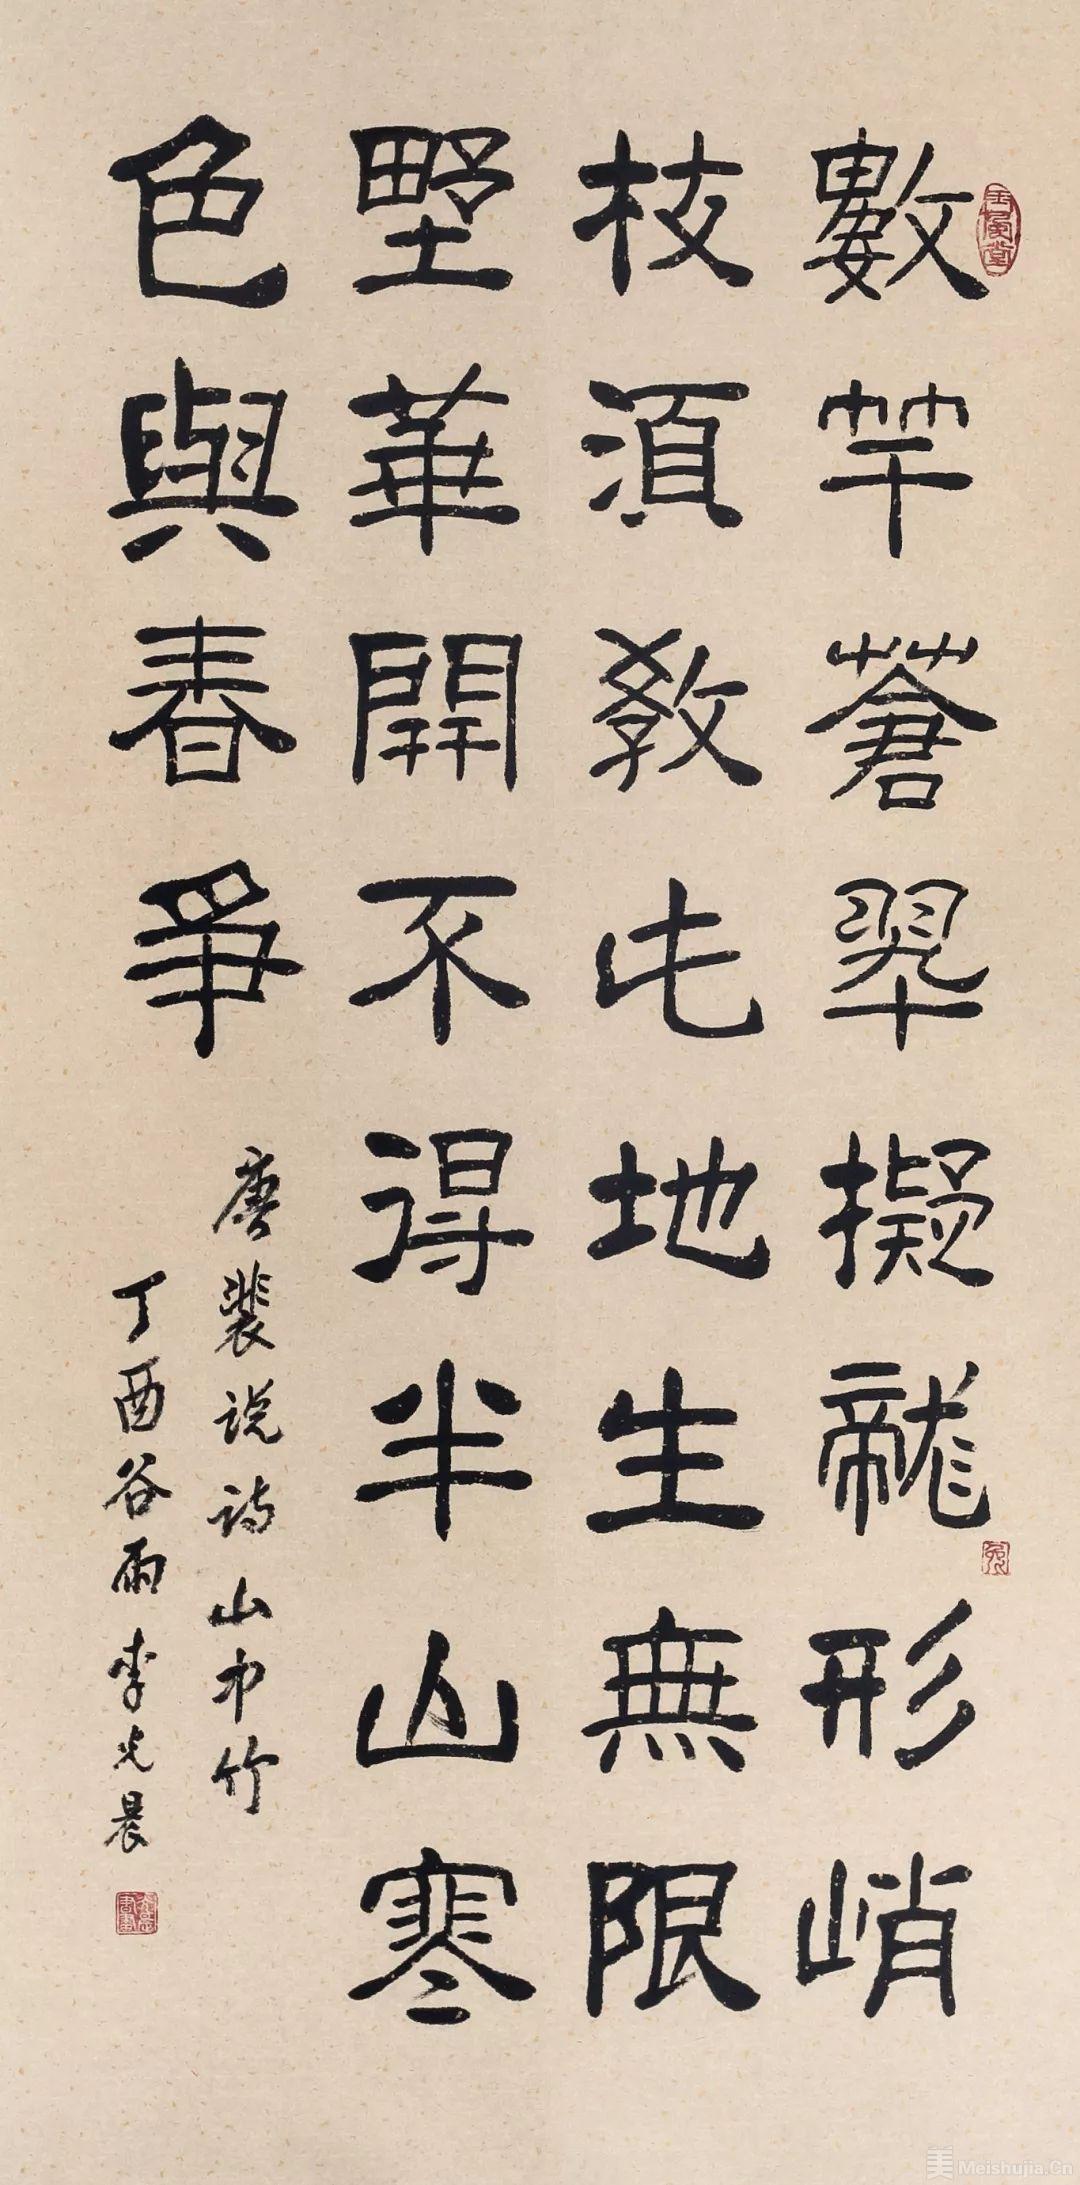 數竿蒼翠擬龍形峭
枝須教此地生無限
野華開不得半山寒
色與春爭
唐裴说诗山中竹
丁酉谷雨李光晨
美 Meishujia.Cn